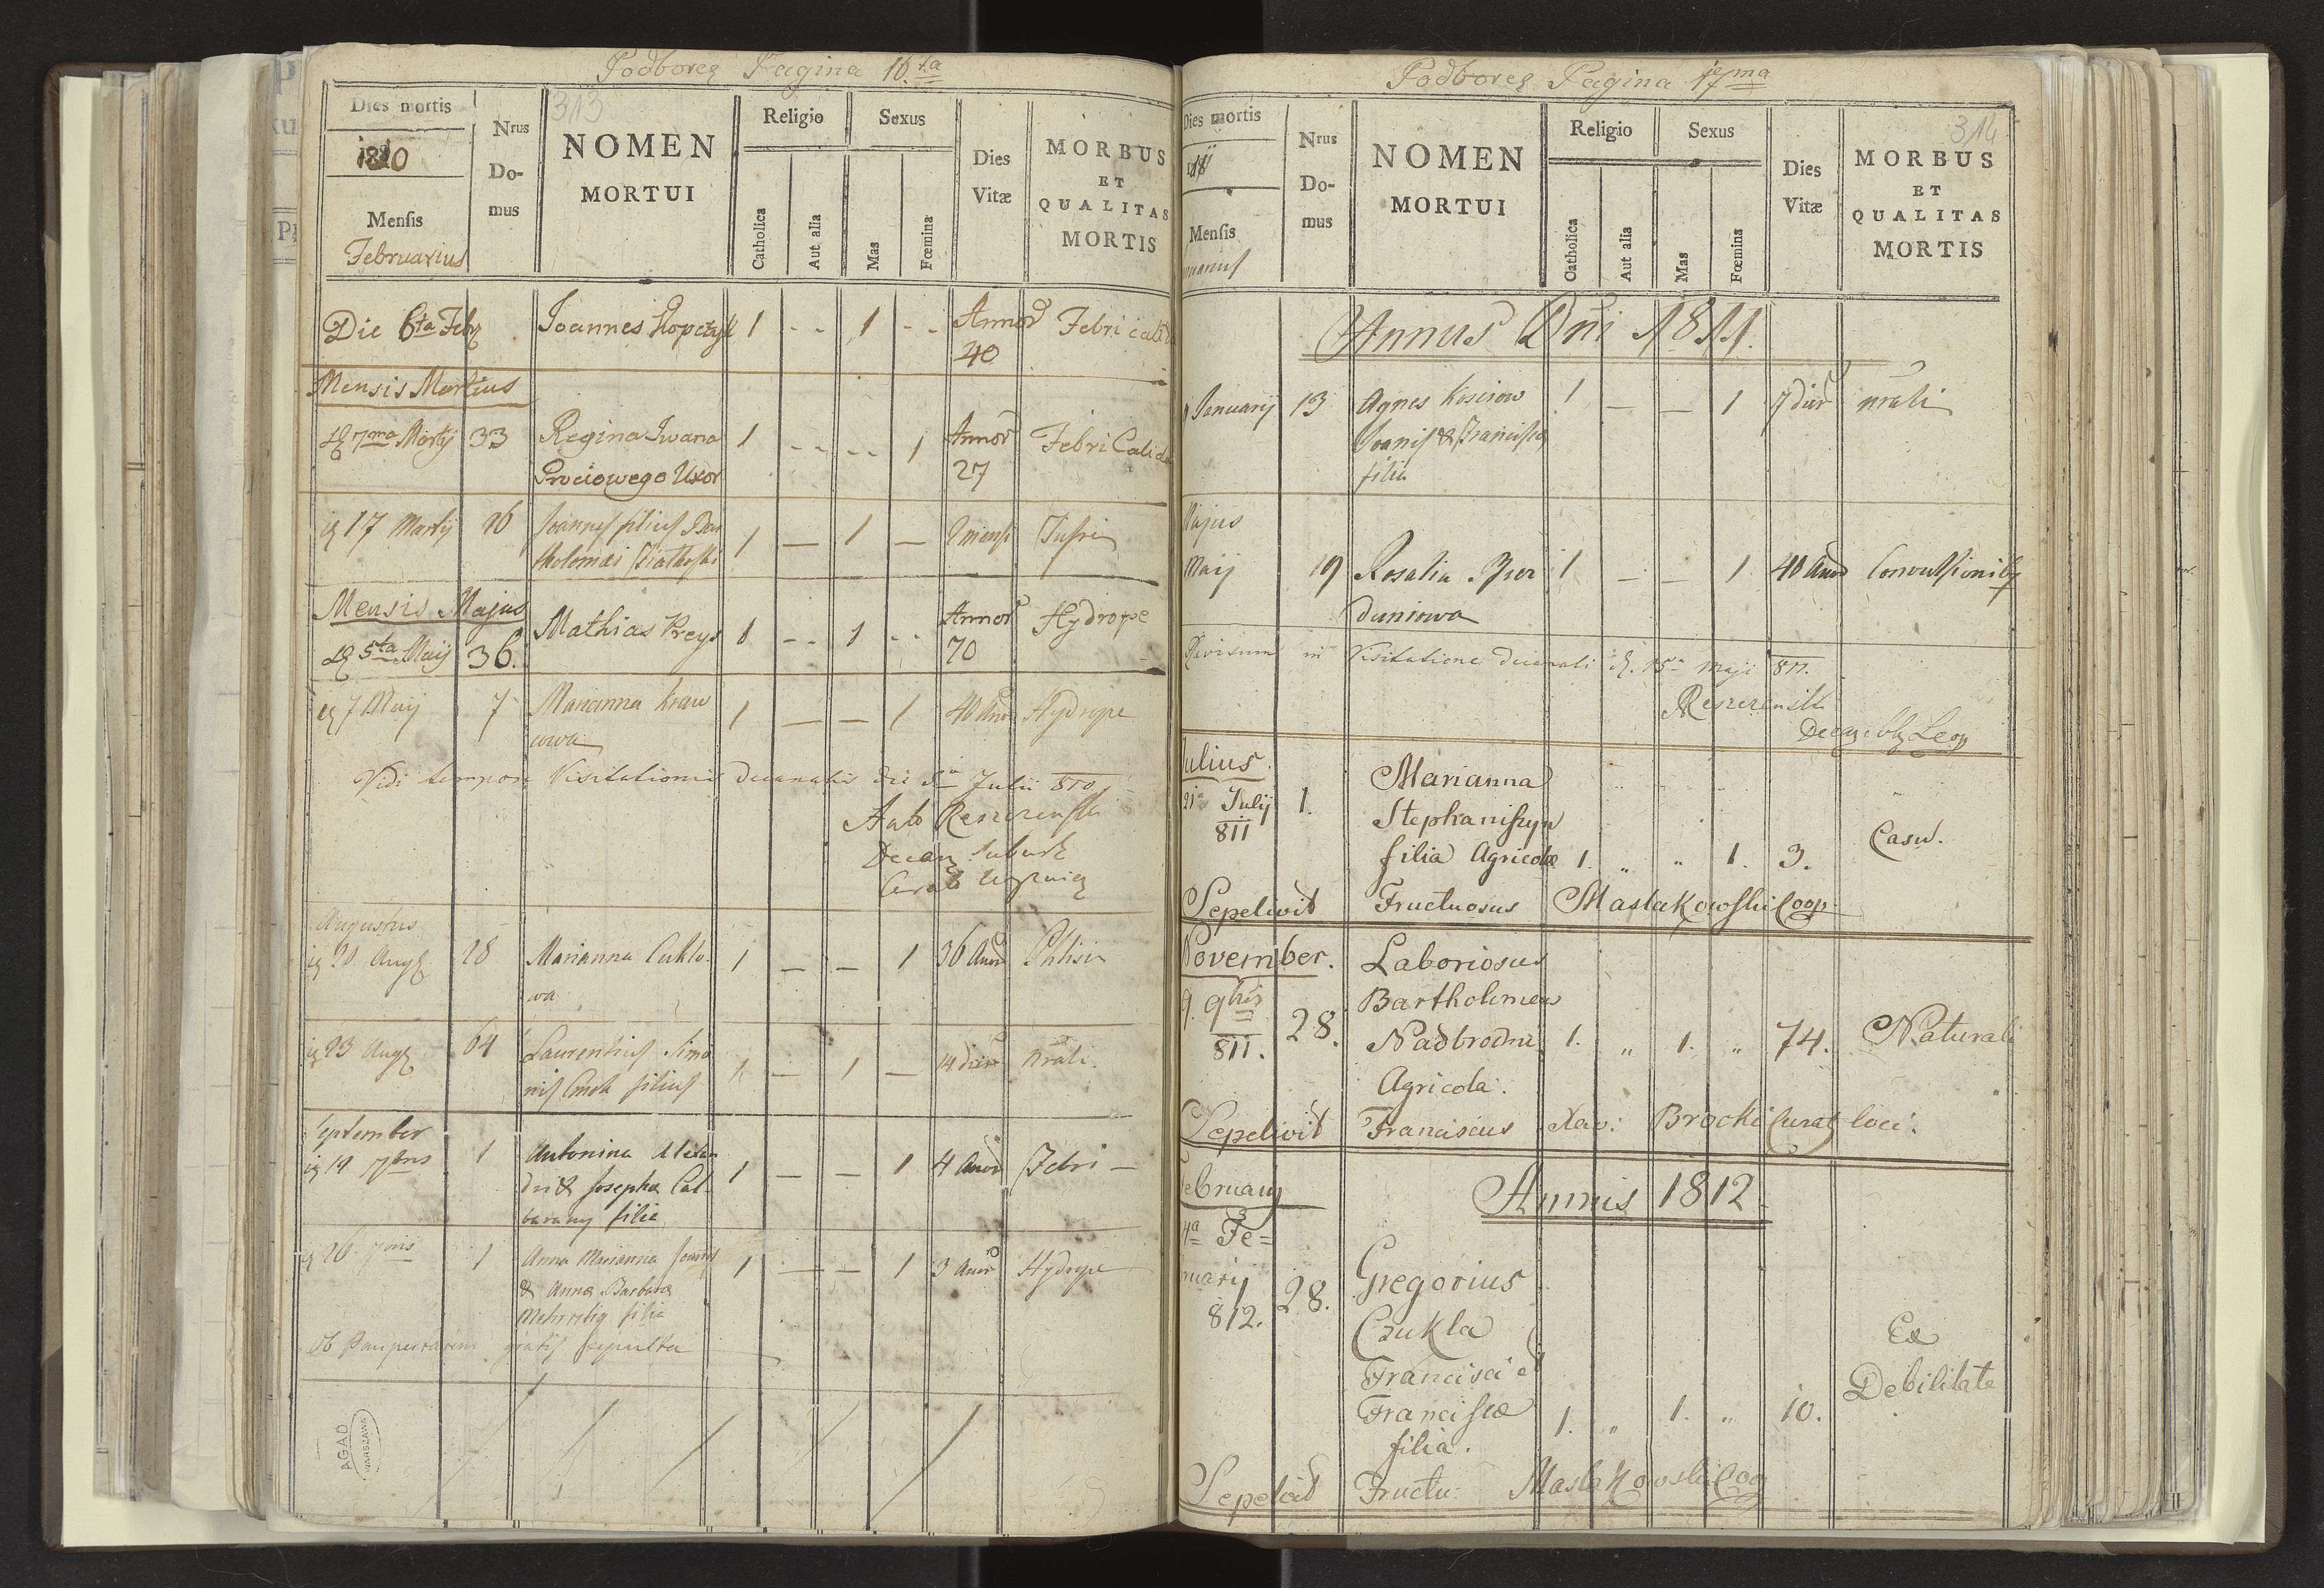 Podboreg Pagina 16.ta
313
Dies mortis
1810
Mensis
Februarius
Nrus
Do-
mus
NOMEN
MORTUI
Religio
Catholica
Aut alia
Sexus
Mas
Fœmina
Dies
Vitæ
MORBUS
ET
QUALITAS
MORTIS
Die 6ta Febr Joannes 1 -- 1 -- Annor 40 Febri calida
Mensis Martius
7ma Martij 33 Regina Iwana 1 -- -- 1 Annor 27 Febri Calida
Prociowego Uxor
17 Martij 26 Joannes filius Bar 1 — 1 — 2 mensi Tussi
tholomæi
Mensis Majus
5ta Maij 36. Mathias Preys 1 -- 1 -- Annor 70 Hydrope
7 Maij 7 Marianna Kraw 1 — — 1 40 Anor Hydrope
cowa
Vidi tempore Visitationis decanalis die Julii 810.
Decan
Augustus
20 Aug 28 Marianna Cuklo- 1 — — 1 36 Anor Phtisi
wa
23 Aug 64 Laurentius Simo 1 — 1 — 14 dier nrali
nis filius
September
19 7bris 1 Antonina Alexan 1 — — 1 4 Anor Febri —
dri & Josepha Cal-
barany filia
26 7bris 1 Anna Marianna Joanis 1 — — 1 3 Anor Hydrope
& Anna Barbara
filia
Ob paupertatem gratis sepulta
AGAD
WARSZAWA
Podboreg Pagina 17ma
314
Dies mortis
1811
Mensis
nuarius
Nrus
Do-
mus
NOMEN
MORTUI
Religio
Catholica
Aut alia
Sexus
Mas
Fœmina
Dies
Vitæ
MORBUS
ET
QUALITAS
MORTIS
Annus Dni 1811.
Januarij 13 Agnes Kosciow 1 — — 1 7 dier nrali
Joanis & Francisca
filia
Majus
Maij 19 Rosalia 1 — — 1 40 Anor Convulsionib
duniowa
Revisum in Visitatione decanali d. 15a Maji 811.
Julius.
21a Julij 1. Marianna
811 Stephaniszyn
filia Agricolæ 1. " " 1. 3. Casu.
Sepelivit Fructuosus Maslakowski Coop.
November. Laboriosus
9bris 28. Bartholomeus
811. Nadbrodni 1. " 1. " 74. Naturali
Agricola.
Sepelivit Franciscus Xav: Brocki Curat loci.
Februarij
Annis 1812.
4a Fe=
ruarij 28. Gregorius
812. Czukla
Francisci et
Franciscæ 1. " 1. " 10. Ex Debilitate
filia.
Sepelivit Fructu: Maslakowski Coo